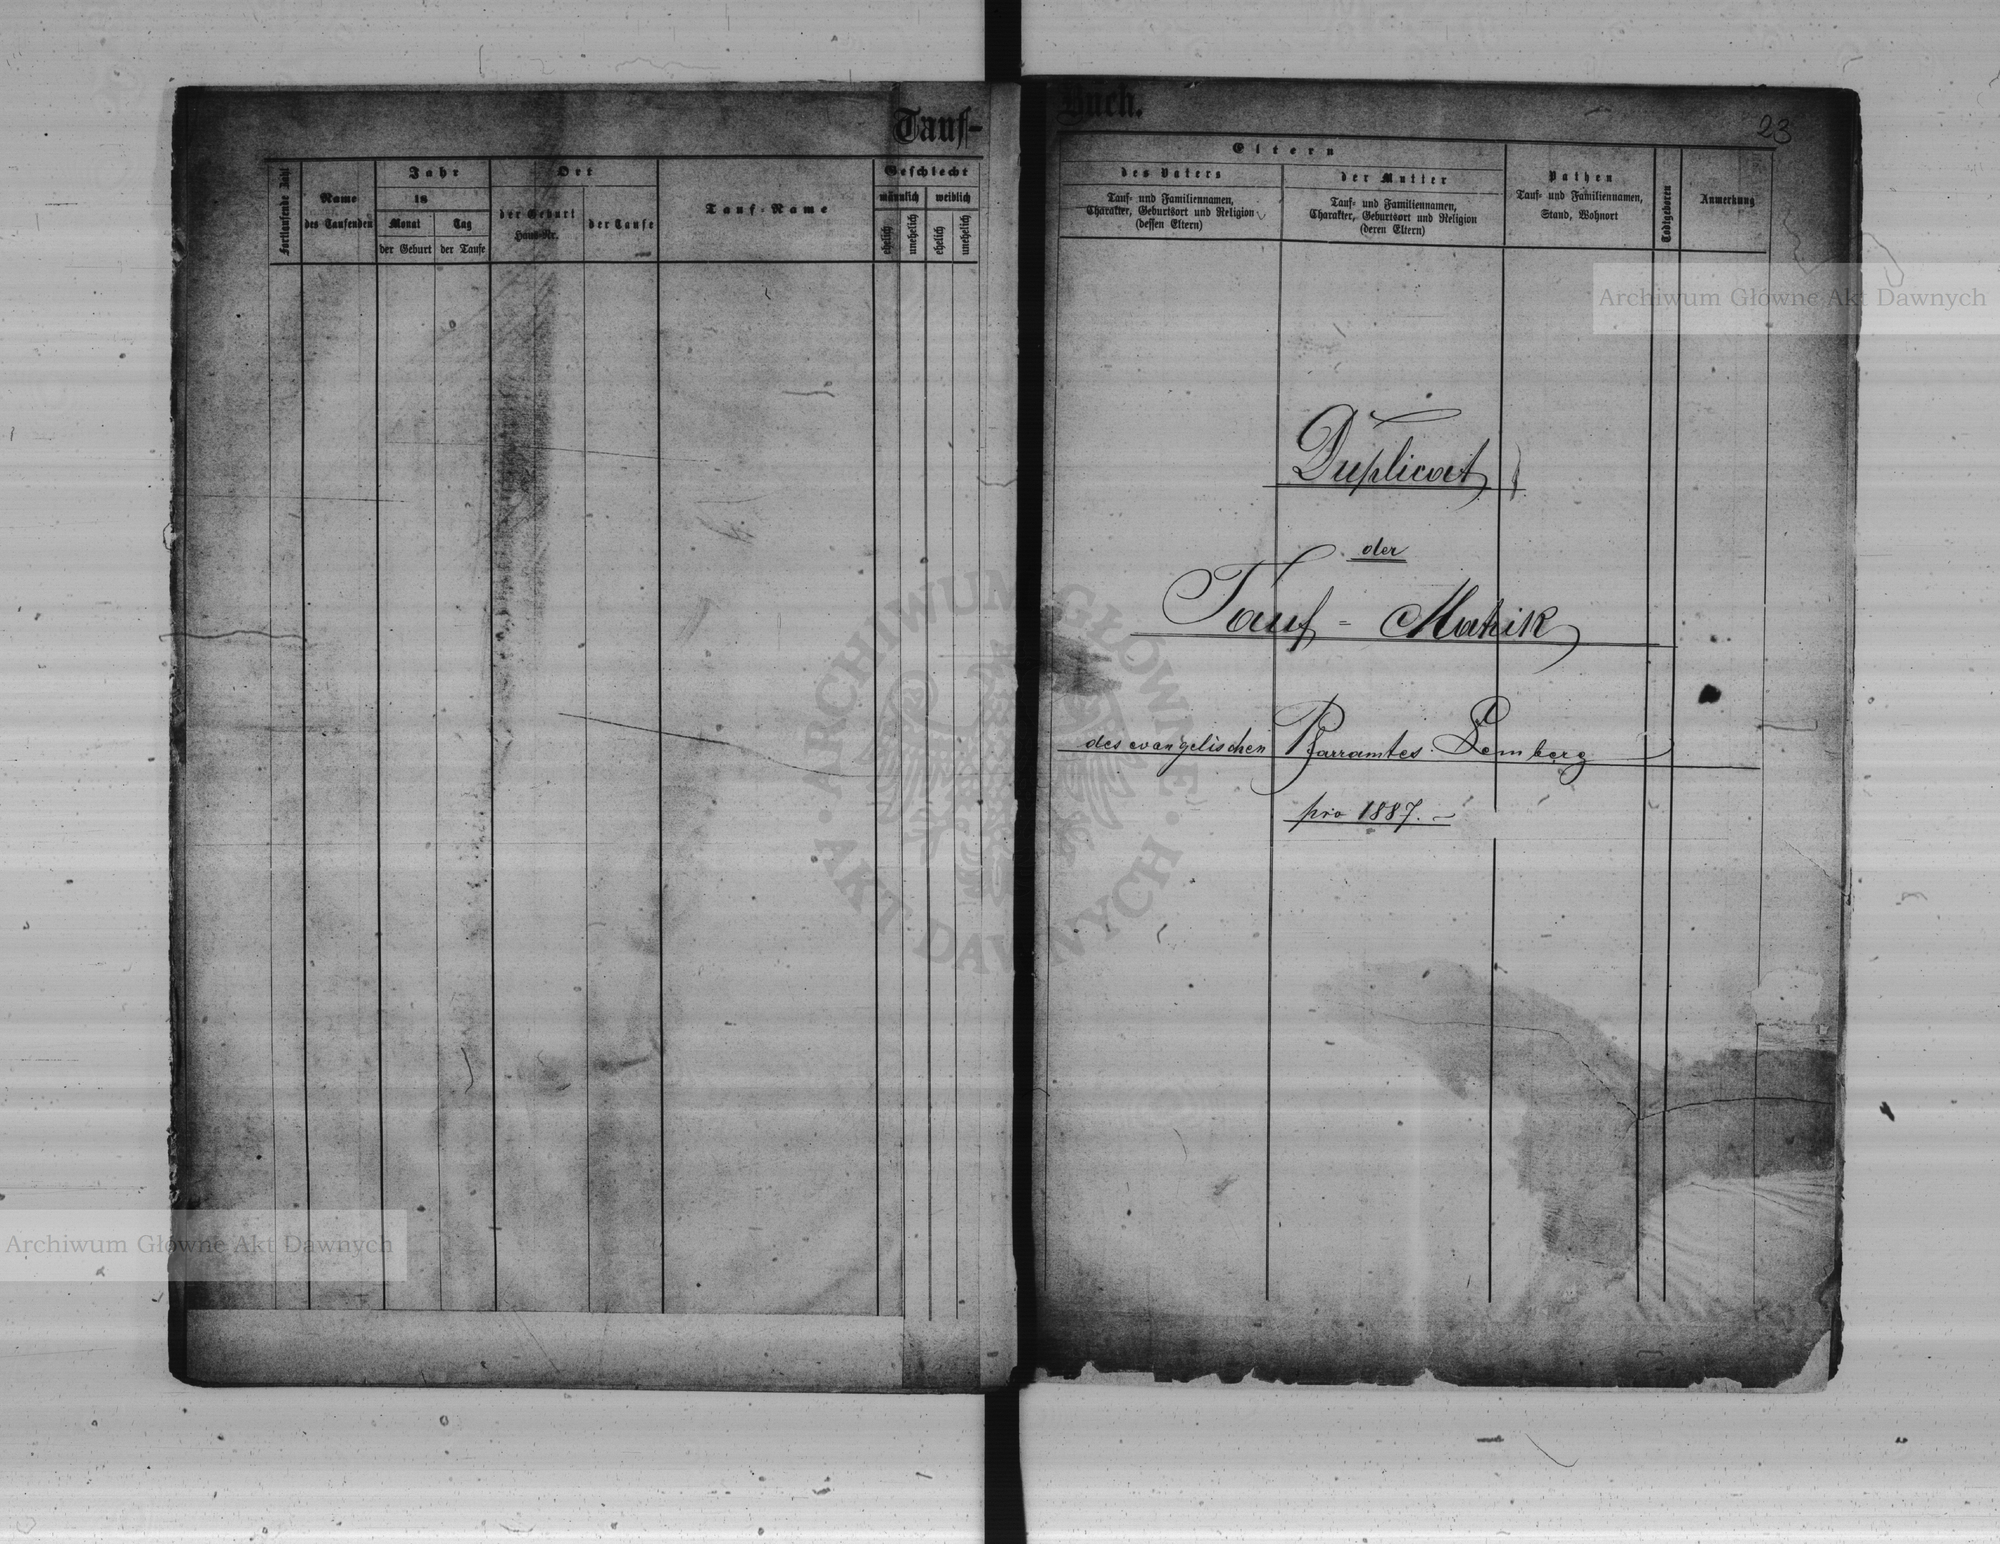 Tauf-
Fortlaufende Zahl
Name
des Taufenden
Jahr
18
Monat
Tag
der Geburt
der Taufe
Ort
der Geburt
Haus-Nr.
der Taufe
Tauf-Name
Geschlecht
männlich
weiblich
ehelich
unehelich
ehelich
unehelich
Buch.
23
Eltern
des Vaters
Tauf- und Familiennamen,
Charakter, Geburtsort und Religion
(dessen Eltern)
der Mutter
Tauf- und Familiennamen,
Charakter, Geburtsort und Religion
(deren Eltern)
Pathen
Tauf- und Familiennamen,
Stand, Wohnort
Todtgeboren
Anmerkung
Duplicat
der
Tauf = Matrik
des evangelischen Pfarramtes Lemberg
pro 1887.
Archiwum Główne Akt Dawnych
ARCHIWUM GŁÓWNE
AKT DAWNYCH
Archiwum Główne Akt Dawnych